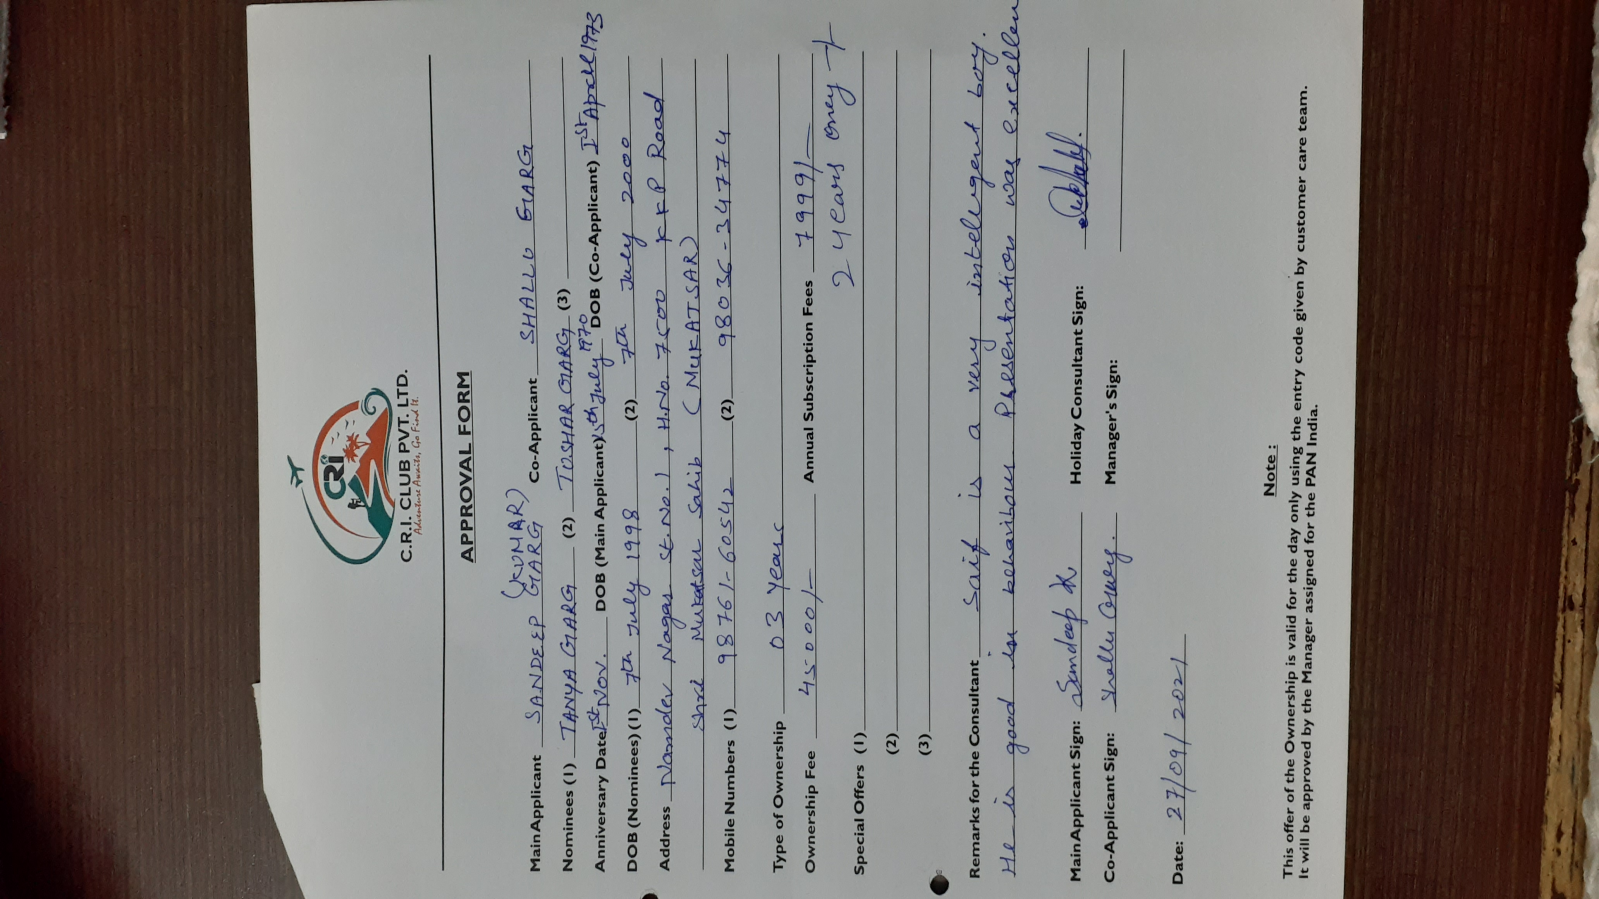 CRI
C.R.I. CLUB PVT. LTD.
Adventure Awaits, Go Find It.
APPROVAL FORM
(KUMAR)
Main Applicant SANDEEP GARG Co-Applicant SHALLU GARG
Nominees (1) TANYA GARG (2) TUSHAR GARG (3)
Anniversary Date 1st Nov. DOB (Main Applicant) 5th July 1970 DOB (Co-Applicant) 1st April 1973
DOB (Nominees) (1) 7th July 1998 (2) 7th July 2000
Address Namdev Nagar St. No. 1, H.No. 7500 K K P Road
Shri Mukatsar Sahib (MUKATSAR)
Mobile Numbers (1) 98761-60542 (2) 98036-34774
Type of Ownership 03 Years
Ownership Fee 45000/- Annual Subscription Fees 7999/-
2 years only +
Special Offers (1)
(2)
(3)
Remarks for the Consultant Saif is a very intelegent boy.
He is good in behaviour Presentation was excellen
Main Applicant Sign: Sandeep K Holiday Consultant Sign:
Co-Applicant Sign: Shallu Manager's Sign:
Date: 27/09/2021
Note :
This offer of the Ownership is valid for the day only using the entry code given by customer care team.
It will be approved by the Manager assigned for the PAN India.